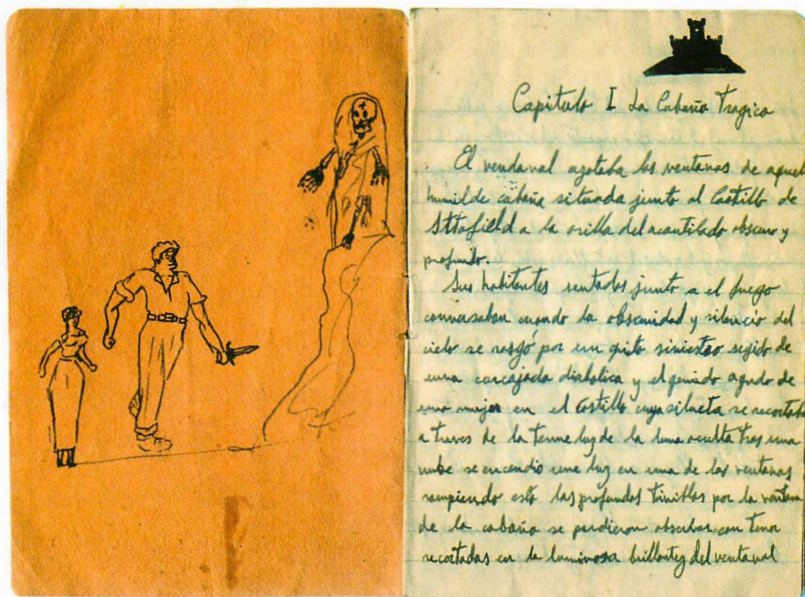 Capitulo I La Cabaña Tragica
El vendaval azotaba las ventanas de aquel
humilde cabaña situada junto al Castillo de
Sttafield a la orilla del acantilado obscuro y
profundo.
Sus habitantes sentados junto a el fuego
conversaban cuando la obscuridad y silencio del
cielo se rasgó por un grito siniestro segido de
una carcajada diabolica y el gemido agudo de
una mujer en el castillo cuya silueta se recortaba
a traves de la tenue luz de la luna oculta tras una
nube se encendio una luz en una de las ventanas
rompiendo esto las profundas tinieblas por la ventana
de la cabaña se pudieron observar con
recortadas en la luminosa brillantez del ventanal